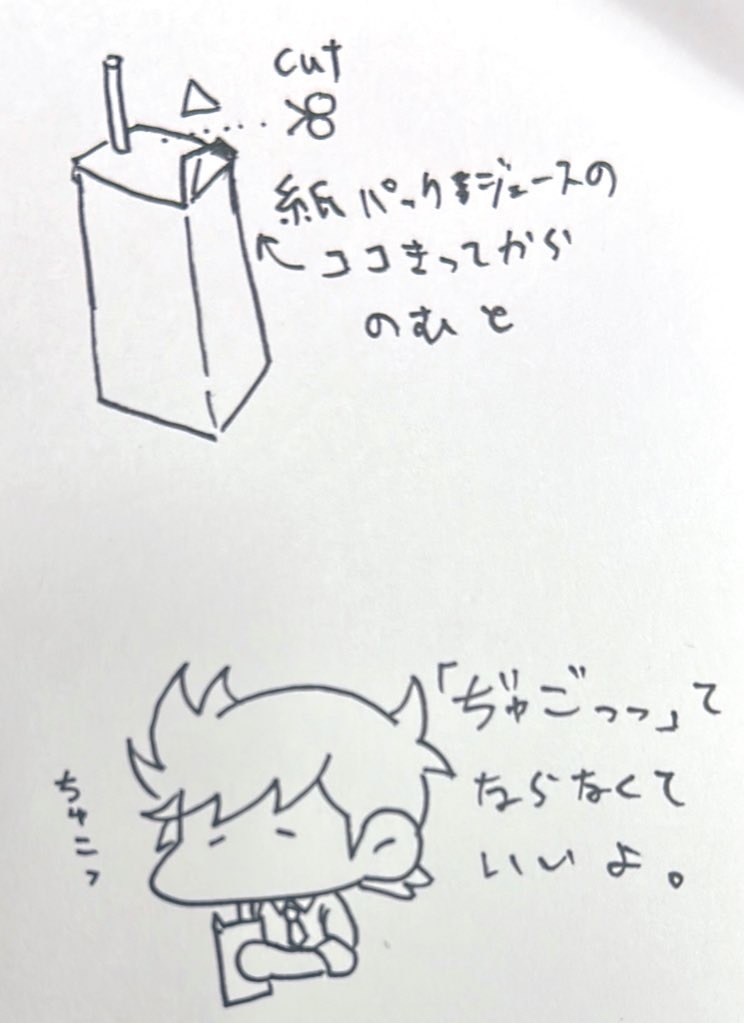 cut
紙パックジュースの
ココきってから
のむと
「ぢゅごっっ」て
ならなくて
いいよ。
ちゅこっ